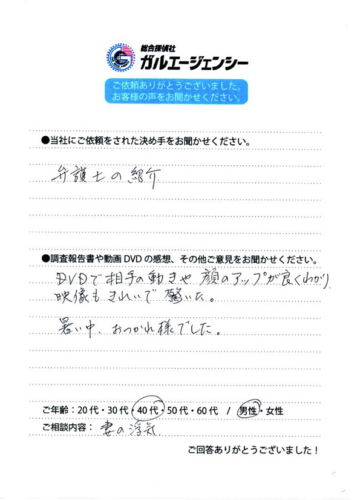 総合探偵社
ガルエージェンシー
ご依頼ありがとうございました。
お客様の声をお聞かせください。
●当社にご依頼をされた決め手をお聞かせください。
弁護士の紹介
●調査報告書や動画DVDの感想、その他ご意見をお聞かせください。
DVDで相手の動きや顔のアップが良くわかり
映像もきれいで驚いた。
暑い中、おつかれ様でした。
ご年齢:20代・30代・40代・50代・60代 / 男性・女性
ご相談内容: 妻の浮気
ご回答ありがとうございました!